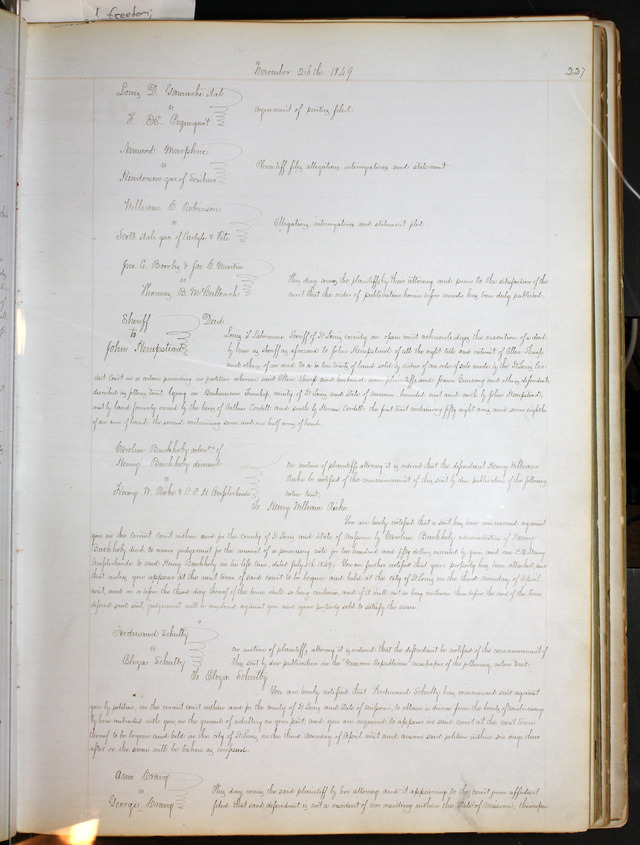 freedom;
November 26th 1849
227
Louis D.
vs
argument of parties filed
vs
Henderson gar. of
Plaintiff files allegations interrogatories and statement
William C. Robinson
vs
Scott
Allegations, interrogatories and statement filed
Jno. C. & Jno. C.
vs
Thomas B. McCullough
This day comes the plaintiffs by their attorney and prove to the satisfaction of the
court that the order of publication herein before made has been duly published
Sheriff
Deed
to
John Hempstead
Louis T. Labeaume Sheriff of St Louis county in open court acknowledges the execution of a deed
by him as sheriff as aforesaid to John Hempstead of all the right title and interest of Ellen
and others of in and to a tracts of land sold by virtue of an order of sale made by the St Louis Cir-
cuit Court in a certain proceeding in partition wherein said Ellen and husband were plaintiffs and others defendants
described as follows towit, lying in Bonhomme Township county of St Louis and State of Missouri, bounded east and north by John Hempstead,
west by land formerly owned by the heirs of Cordell and south by Cordell, the first tract containing fifty eight acres and some eighths
of an acre of land, the second containing some and one half acres of land.
Caroline of
Henry deceased
vs
Henry W. &
on motion of plaintiffs attorney it is ordered that the defendant Henry William
be notified of the commencement of this suit by due publication of the following
notice towit:
To Henry William
You are hereby notified that a suit has been commenced against
you in the circuit court within and for the county of St Louis and State of Missouri by Caroline administratrix of Henry
decd. to recover judgement for the amount of a promissory note for two hundred and fifty dollars executed by you and one
to said Henry in his life time, dated July 1849. You are further notified that your property has been attached, and
that unless you appear at the next term of said court to be begun and held at the city of St Louis on the third monday of April
next, and on or before the third day thereof if the term shall so long continue, and if it shall not so long continue then before the end of the term
defend said suit, judgement will be rendered against you and your property sold to satisfy the same.
Ferdinand Schulty
vs
Eliza Schulty
on motion of plaintiffs attorney it is ordered that the defendant be notified of the commencement of
this suit by due publication in the Missouri Republican newspaper of the following notice towit:
To Eliza Schulty
You are hereby notified that Ferdinand Schulty has commenced suit against
you by petition, in the circuit court within and for the county of St Louis and State of Missouri, to obtain a divorce from the bonds of matrimony
by him contracted with you, on the ground of adultery on your part, and you are required to appear in said court at the next term
thereof to be begun and held in the city of St Louis, on the third Monday of April next and answer said petition within six days there-
after or the same will be taken as confessed.
Ann
vs
George
This day comes the said plaintiff by her attorney and it appearing to the court from affidavit
filed that said defendant is not a resident of nor residing within the State of Missouri, therefore